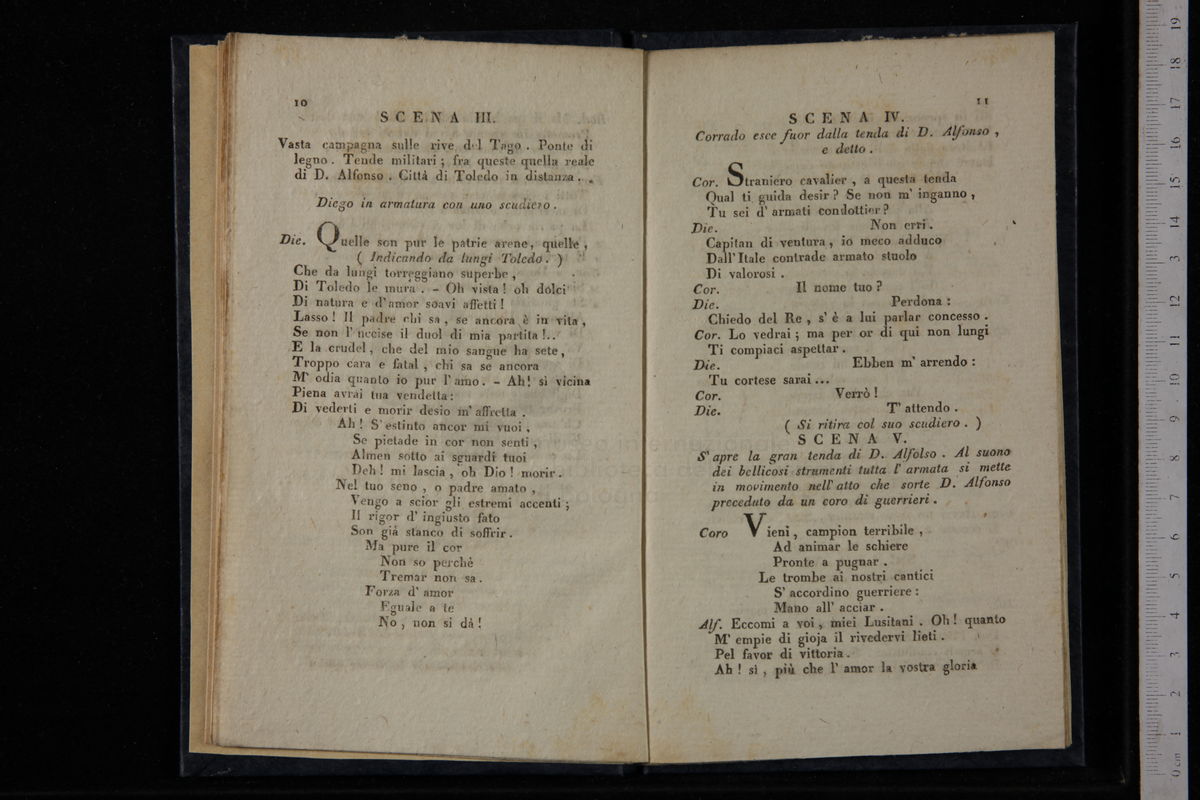 10
SCENA III.
Vasta campagna sulle rive del Tago. Ponte di
legno. Tende militari; fra queste quella reale
di D. Alfonso. Città di Toledo in distanza..
Diego in armatura con uno scudiero.
Die. Quelle son pur le patrie arene, quelle,
( Indicando da lungi Toledo. )
Che da lungi torreggiano superbe,
Di Toledo le mura. - Oh vista! oh dolci
Di natura e d'amor soavi affetti!
Lasso! Il padre chi sa, se ancora è in vita,
Se non l'uccise il duol di mia partita!..
E la crudel, che del mio sangue ha sete,
Troppo cara e fatal, chi sa se ancora
M' odia quanto io pur l'amo. - Ah! sì vicina
Piena avrai tua vendetta:
Di vederti e morir desio m' affretta.
Ah! S'estinto ancor mi vuoi,
Se pietade in cor non senti,
Almen sotto ai sguardi tuoi
Deh! mi lascia, oh Dio! morir.
Nel tuo seno, o padre amato,
Vengo a scior gli estremi accenti;
Il rigor d' ingiusto fato
Son già stanco di soffrir.
Ma pure il cor
Non so perchè
Tremar non sa.
Forza d' amor
Eguale a te
No, non si dà!
11
SCENA IV.
Corrado esce fuor dalla tenda di D. Alfonso,
e detto.
Cor. Straniero cavalier, a questa tenda
Qual ti guida desir? Se non m' inganno,
Tu sei d' armati condottier?
Die. Non erri.
Capitan di ventura, io meco adduco
Dall'Itale contrade armato stuolo
Di valorosi.
Cor. Il nome tuo?
Die. Perdona:
Chiedo del Re, s' è a lui parlar concesso.
Cor. Lo vedrai; ma per or di qui non lungi
Ti compiaci aspettar.
Die. Ebben m' arrendo:
Tu cortese sarai...
Cor. Verrò!
Die. T' attendo.
( Si ritira col suo scudiero. )
SCENA V.
S' apre la gran tenda di D. Alfolso. Al suono
dei bellicosi strumenti tutta l' armata si mette
in movimento nell' atto che sorte D. Alfonso
preceduto da un coro di guerrieri.
Coro Vieni, campion terribile,
Ad animar le schiere
Pronte a pugnar.
Le trombe ai nostri cantici
S' accordino guerriere:
Mano all' acciar.
Alf. Eccomi a voi, miei Lusitani. Oh! quanto
M' empie di gioja il rivedervi lieti.
Pel favor di vittoria.
Ah! sì, più che l' amor la vostra gloria
0 cm 1 2 3 4 5 6 7 8 9 10 11 12 13 14 15 16 17 18 19